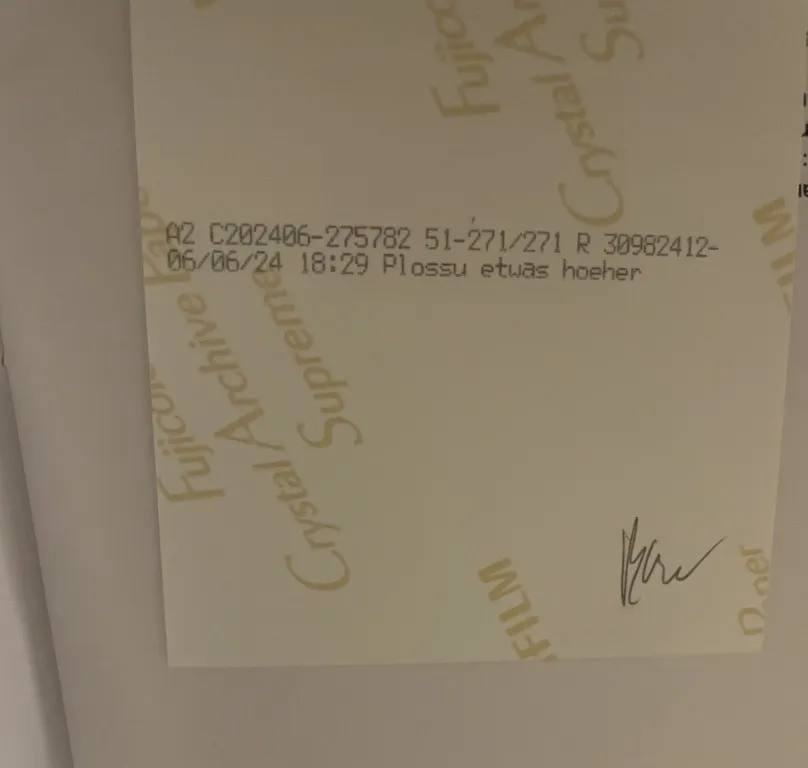 Fujico
Crystal Ar
Su
A2 C202406-275782 51-271/271 R 30982412-
06/06/24 18:29 Plossu etwas hoeher
FILM
Fujicolo
Crystal Archive Pape
Supreme
FILM
Paper